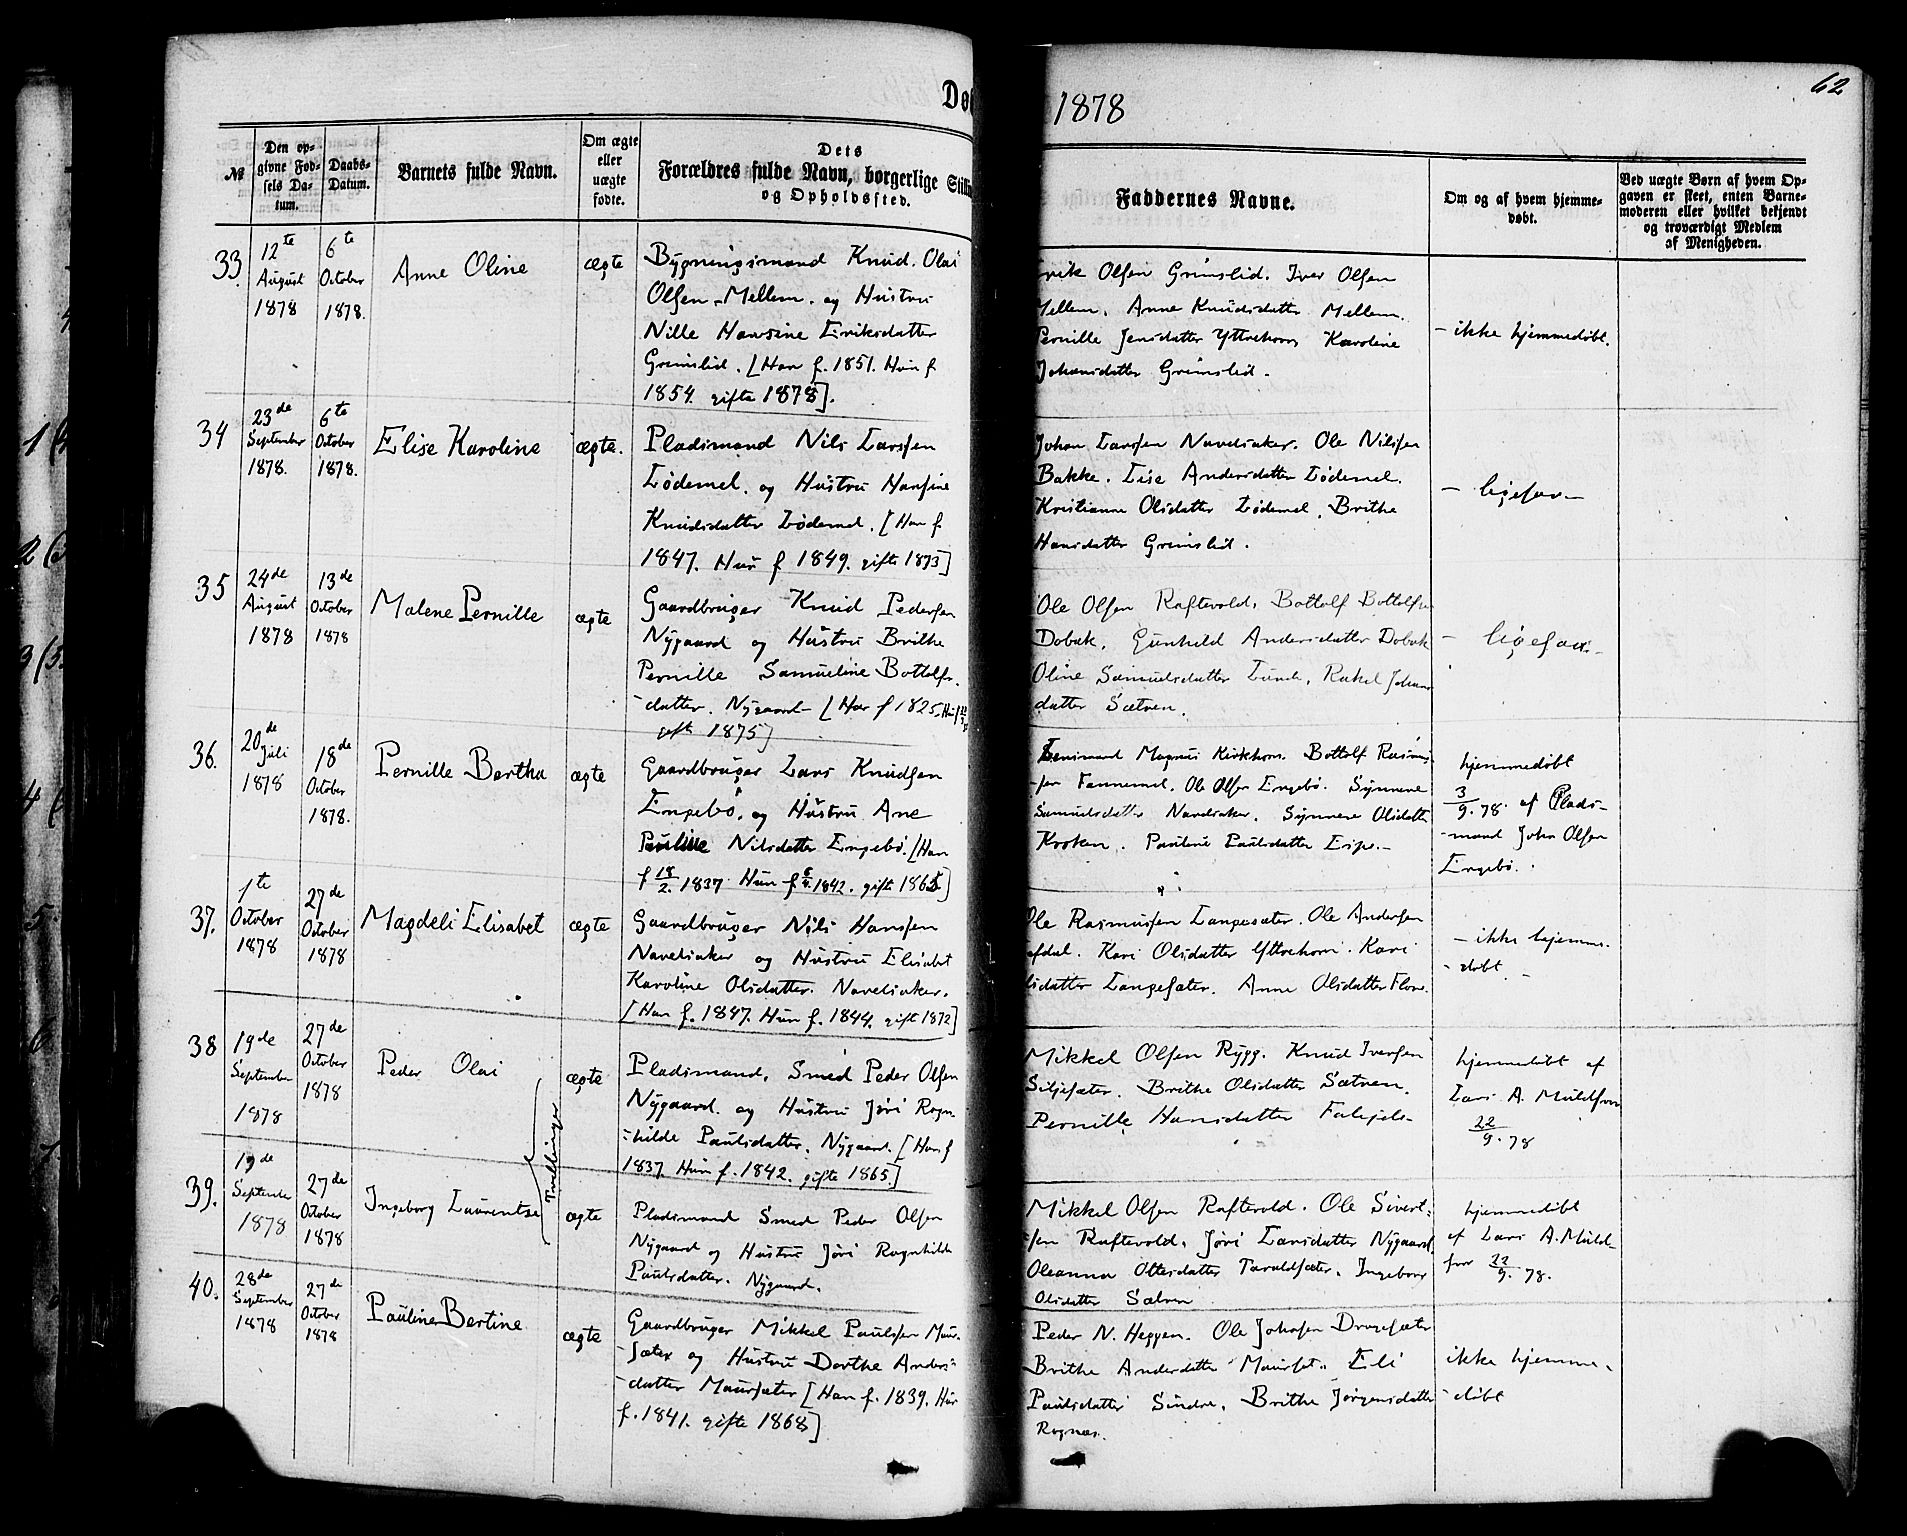 Døb
1878
62
№
Den op-
givne Fød-
sels Da-
tum.
Daabs-
Datum.
Barnets fulde Navn.
Om ægte
eller
uægte
fødte.
Dets
Forældres fulde Navn, borgerlige Stilli
og Opholdssted.
Faddernes Navne.
Om og af hvem hjemme-
døbt.
Ved uægte Børn af hvem Op-
gaven er skeet, enten Barne-
moderen eller hvilket bekjendt
og troværdigt Medlem
af Menigheden.
33.
12te
August
1878
6te
October
1878.
Anne Oline
ægte
Bygningsmand Knud. Olai
Olsen Mellem. og Hustru
Nille Hansine Eriksdatter
Grimslid. [Han f. 1851. Hun f
1854. gifte 1878].
Erik Olsen Grimslid. Iver Olsen
Mellem. Anne Knudsdatter Mellem.
Pernille Jensdatter Yttrehorn Karoline
Johansdatter Grimslid.
- ikke hjemmedøbt.
34
23de
September
1878.
6te
October
1878.
Elise Karoline
ægte.
Pladsmand Nils Larssen
Lødemel. og Hustru Hansine
Knudsdatter Lødemel. [Han f
1847. Hun f 1849. gifte 1873]
Johan Larssen Navelsaker. Ole Nilssen
Bakke. Lise Andersdatter Lødemel.
Kristianne Olsdatter Lødemel. Brithe
Hansdatter Grimslid.
- ligesaa -
35
24de
August
1878
13de
October
1878
Malene Pernille
ægte
Gaardbruger Knud Pedersen
Nygaard og Hustru Brithe
Pernille Samueline Bottolfs-
datter. Nygaard - [Han f 1825. Hun f
gift 1875]
Ole Olsen Raftevold. Bottolf Bottolfsen
Dobak. Gunhild Andersdatter Dobak
Oline Samuelsdatter Lunde, Rakel Johans
datter Sætren.
- ligesaa -
36.
20de
Juli
1878
18de
October
1878.
Pernille Bertha
ægte
Gaardbruger Lars Knudsen
Engebø. og Hustru Ane
Pauline Nilsdatter Engebø. [Han
f 18/2. 1837 Hun f 8/4. 1842. gifte 1865]
Lensmand Magnus Kirkhorn. Bottolf Rasmus
-sen Fannemel. Ole Olsen Engebø. Synneve
Samuelsdatter Navelsaker. Synneve Olsdatter
Kroken. Pauline Paulsdatter Espe.-
hjemmedøbt
3/9. 78. af Plads-
-mand John Olsen
Engebø.
37.
1te
October
1878
27de
October
1878
Magdeli Elisabet
ægte
Gaardbruger Nils Hansen
Navelsaker og Hustru Elisabet
Karoline Olsdatter. Navelsaker.
[Han f. 1847. Hun f. 1844. gifte 1872]
Ole Rasmussen Langesæter. Ole Andersen
Kari Olsdatter Yttrehorn. Kari
Langesæter. Anne Olsdatter Flore.
- ikke hjemme-
- døbt. -
38
19de
September
1878
27de
October
1878
Peder Olai
Tvillinger
ægte
Pladsmand, Smed Peder Olsen
Nygaard. og Hustru Jøri Ragn
-hilde Paulsdatter. Nygaard. [Han f
1837. Hun f. 1842. gifte 1865]
Mikkel Olsen Rygg. Knud Iversen
Siljesæter. Brithe Olsdatter Sætren.
Pernille Hansdatter
hjemmedøbt af
Lars A. Muldsvor
22/9. 78
39.
19de
September
1878
27de
October
1878
Ingeborg Laurentse
ægte
Pladsmand Smed Peder Olsen
Nygaard og Hustru Jøri Ragnhilde
Paulsdatter. Nygaard.
Mikkel Olsen Raftevold. Ole Sivert-
-sen Raftevold. Jøri Larsdatter Nygaard.
Oleanna Ottersdatter Taraldsæter. Ingeborg
Olsdatter Sætren
hjemmedøbt
af Lars A. Muld-
svor 22/9. 78.
40.
28de
September
1878
27de
October
1878
Pauline Bertine
ægte
Gaardbruger Mikkel Paulssen Maur-
-sæter og Hustru Dorthe Anders-
-datter Maursæter [Han f. 1839. Hun
f. 1841. gifte 1868]
Peder N. Heggen. Ole Johasen Dragesæter
Brithe Andersdatter Maurset. Eli
Paulsdatter Sindre. Brithe Jørgensdatter
Rognes.
ikke hjemme-
-døbt